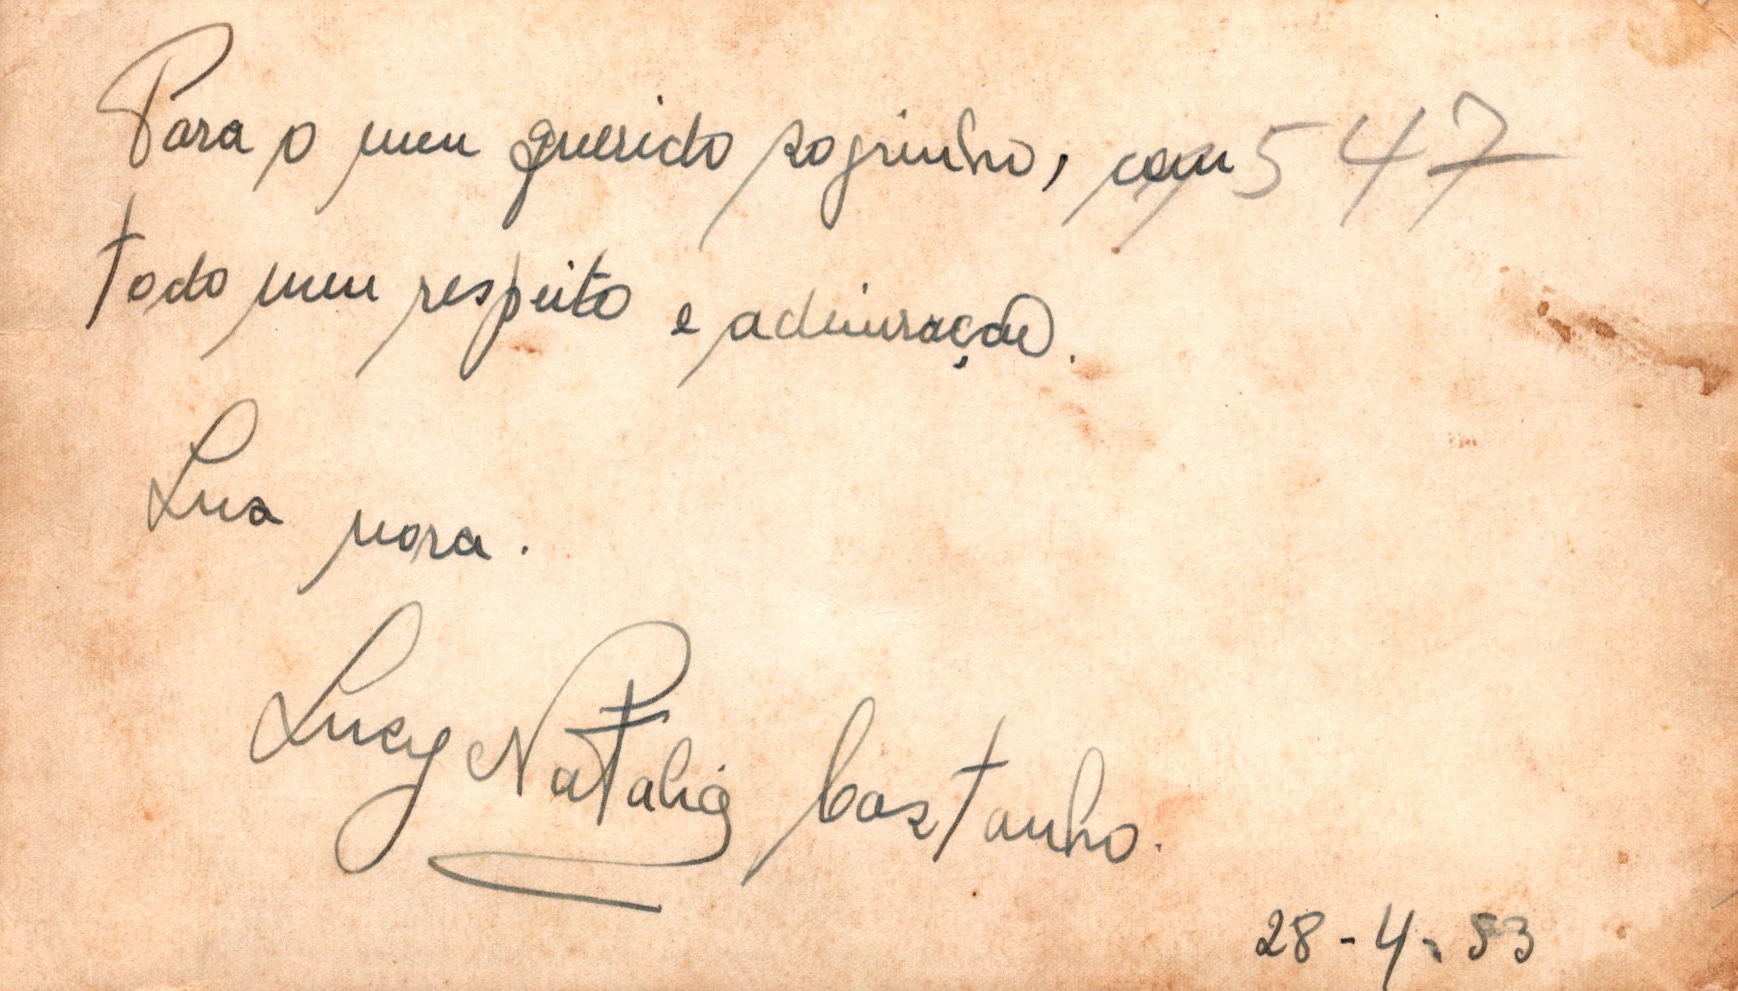 Para o meu querido sogrinho, com 547
todo meu respeito e admiração.
Sua nora.
Lucy Natalia Castanho.
28-4-53